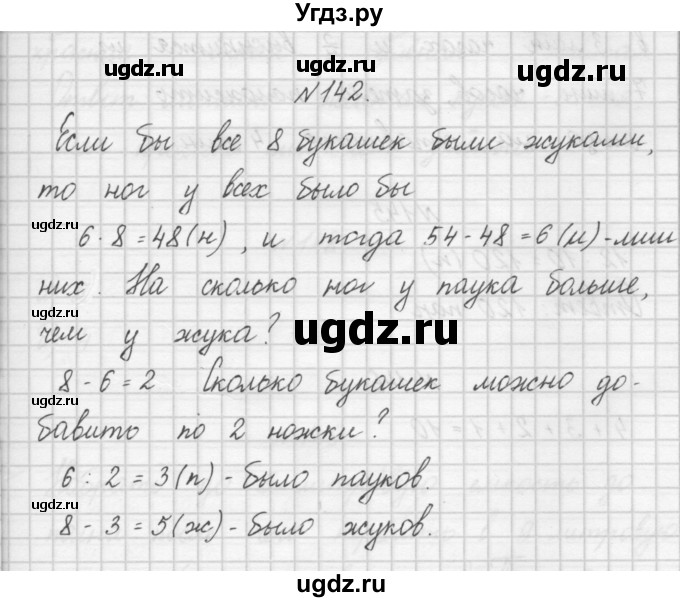 Угдз.ру
ugdz.ru ugdz.ru
№142.
Если бы все 8 букашек были жуками,
то ног у всех было бы
ugdz.ru
6·8=48(н), и тогда 54-48=6(н)-лиш
них. На сколько ног у паука больше,
ugdz.ru
чем у жука?
ugdz.ru
8-6=2 Сколько букашек можно до-
ugdz.ru
бавить по 2 ножки?
6:2=3(п)-было пауков.
ugdz.ru
8-3=5(ж)-было жуков.
ugdz.ru ugdz.ru
ugdz.ru